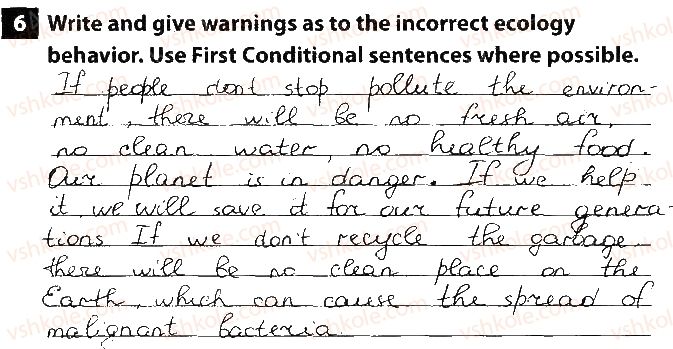 6 Write and give warnings as to the incorrect ecology
behavior. Use First Conditional sentences where possible.
If people dont stop pollute the environ-
ment, there will be no fresh air,
no clean water, no healthy food.
Our planet is in danger. If we help
it, we will save it for our future genera-
tions If we don't recycle the garbage
there will be no clean place on the
Earth, which can cause the spread of
malignant bacteria